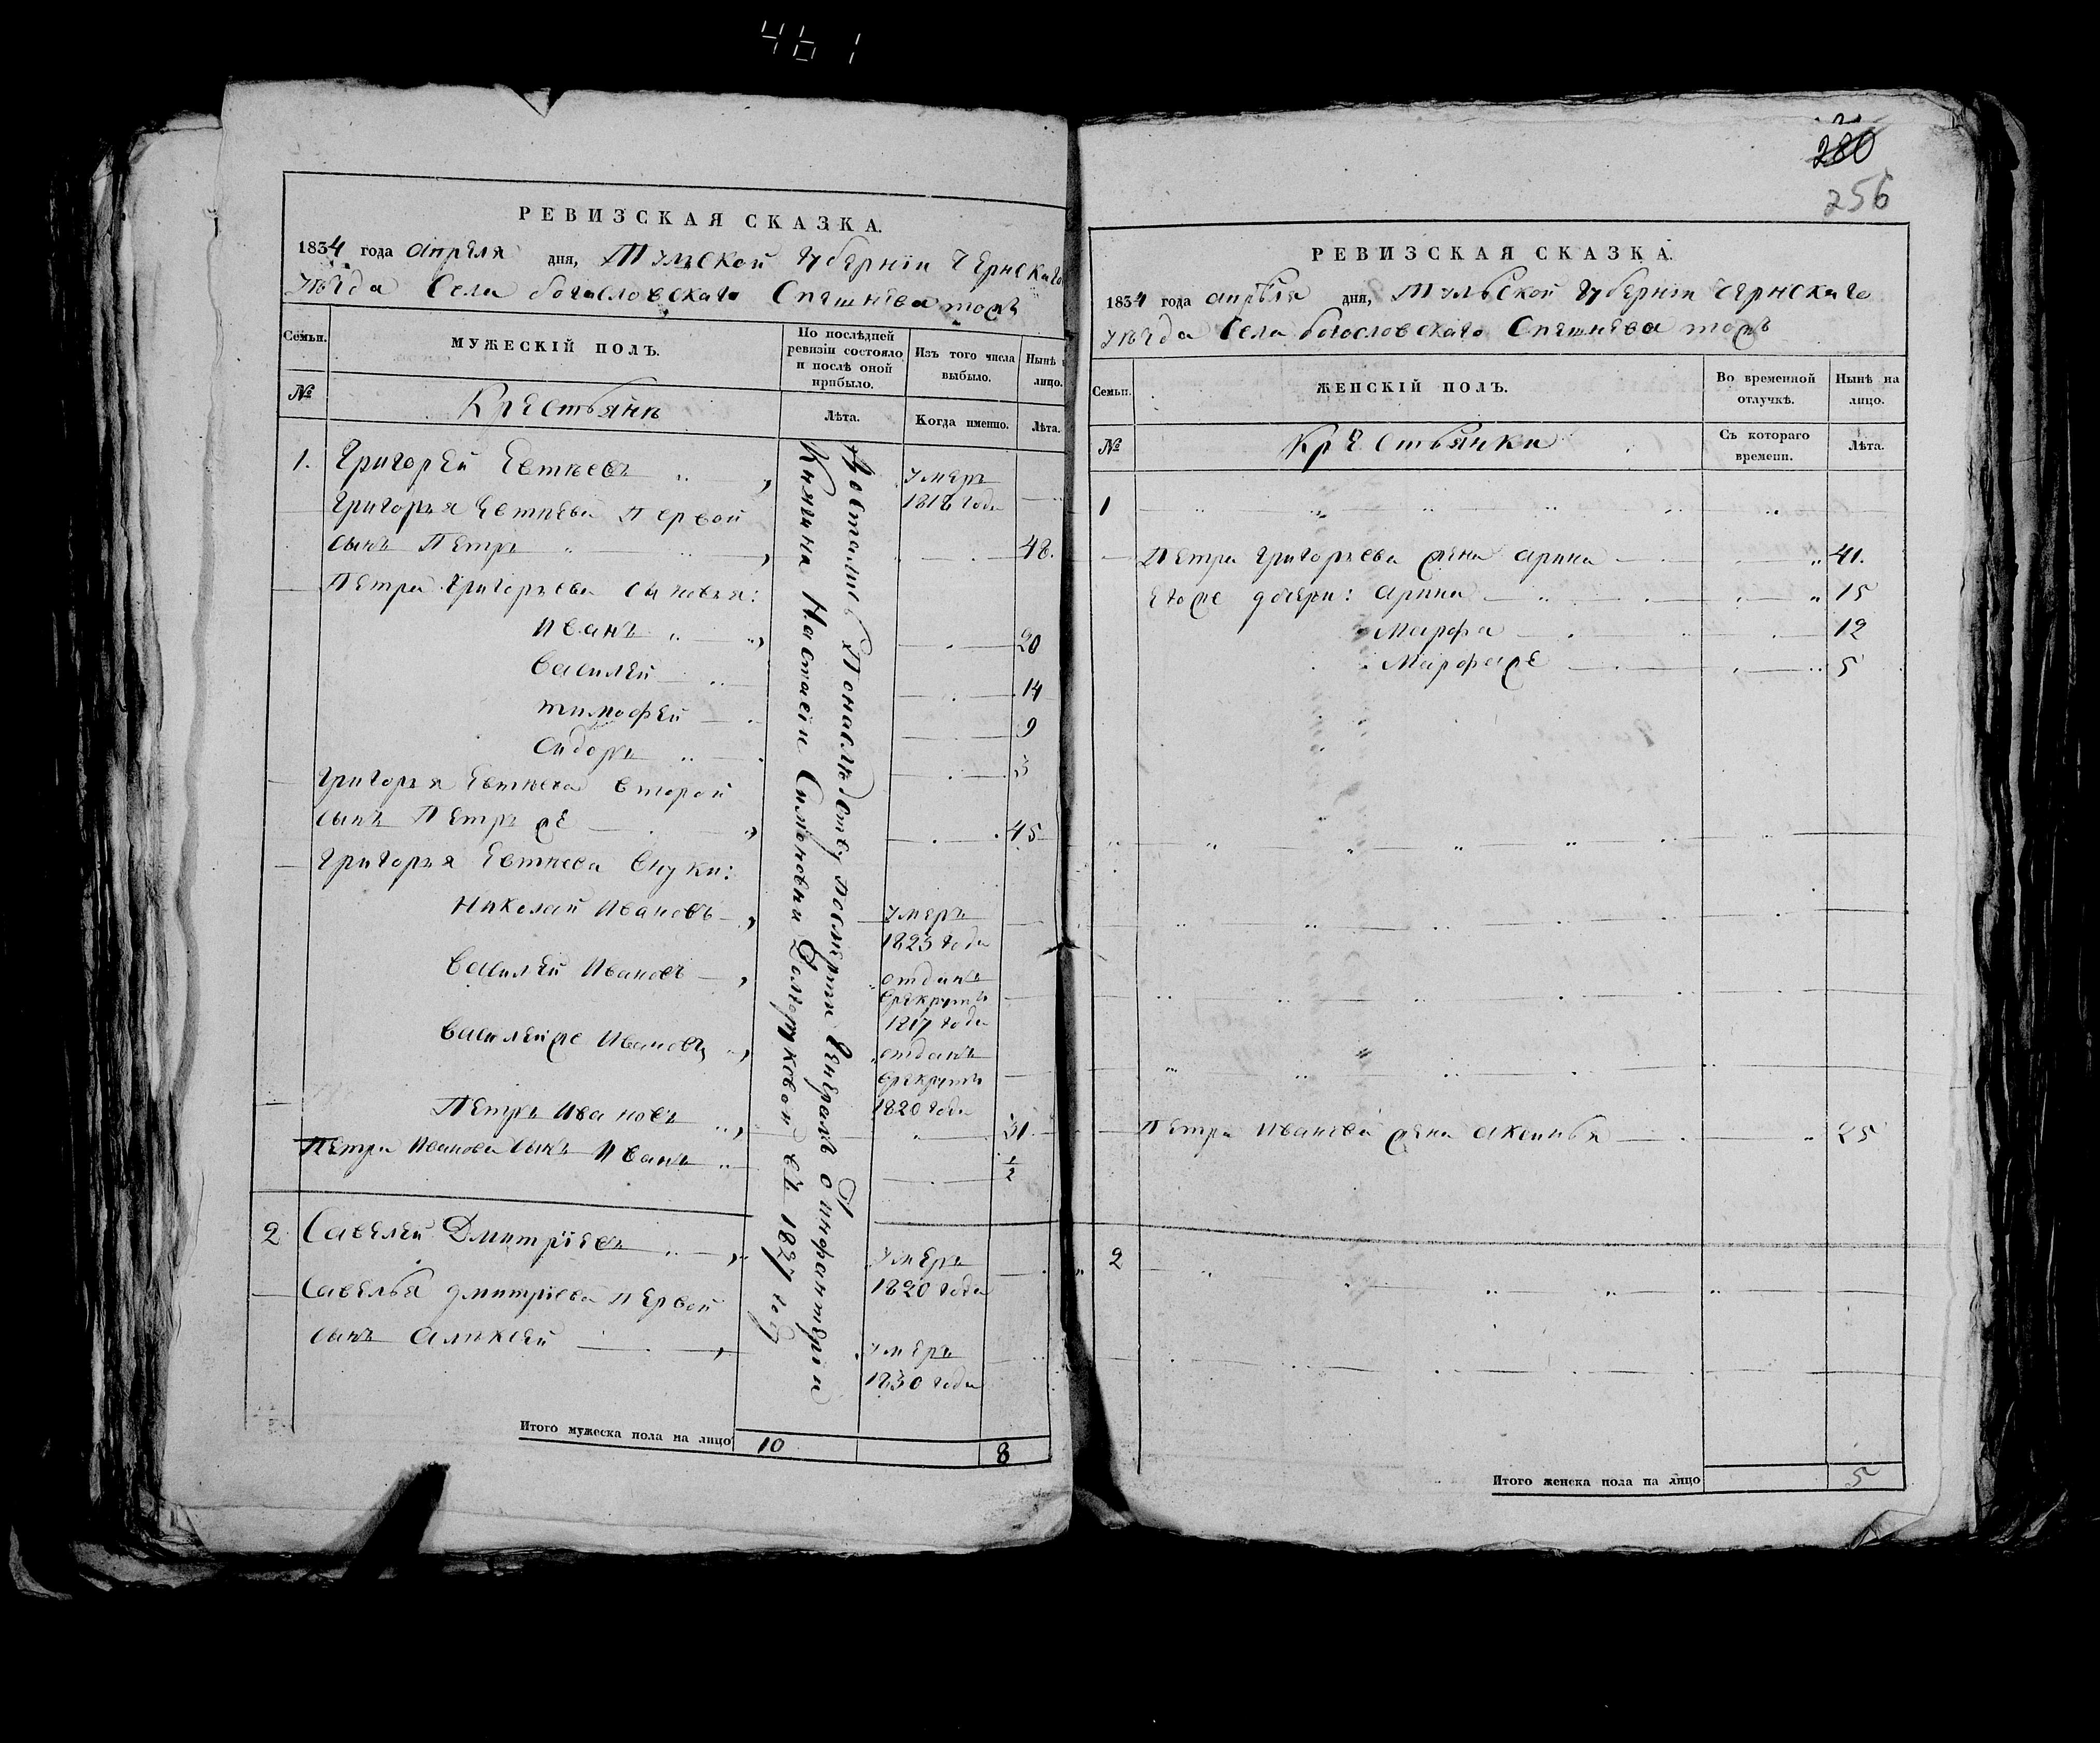 461
РЕВИЗСКАЯ СКАЗКА.
1834 года апреля дня, Тульской губерніи Чернскаго
уѣзда Села богословскаго Спешнева тожъ
Семьи.
МУЖЕСКІЙ ПОЛЪ.
По послѣдней ревизіи состояло и послѣ оной прибыло.
Изъ того числа выбыло.
Нынѣ
лицо.
№
Крестьянъ
Лѣта.
Когда именно.
Лѣта.
1. Григорей Евтѣевъ умеръ
1818 года
Григорья Евтѣева первой
сынъ Петръ 48.
Петра Григорьева сыновья:
Иванъ 20
Василей 14
тимофей 9
Сидоръ 3
Григорья Евтѣева второй
сынъ Петръ же 45
Григорья Евтѣева внуки:
Николай Ивановъ умеръ
1823 года
Василей Ивановъ отданъ
врекруты
1817 года
Василей же Ивановъ отданъ
врекруты
1820 года
Петръ Ивановъ 31
Петра Иванова сынъ Иванъ 1/2
2 Савелей Дмитріевъ умеръ
1820 года
Савелья дмитріева первой
сынъ Алѣксей умеръ
1830 года
Достались Понаслѣдству посмерти Генералъ отинфантеріи
Княгина Настасіи Симоновны Долгоруковой въ 1827 году
Итого мужеска пола на лицо 10 8
280
256
РЕВИЗСКАЯ СКАЗКА.
1834 года апрѣля дня, Тульской губерніи Чернскаго
уѣзда Села богословскаго Спешнева тожъ
Семьи.
ЖЕНСКІЙ ПОЛЪ.
Во временной отлучкѣ.
Нынѣ на лицо.
№
Крестьянки
Съ котораго времени.
Лѣта.
1
Петра Григорьева жена Арина 41.
Его же дочери: Арина 15
Марфа 12
Марфа же 5
Петра Иванова жена Аксинья 25
2
Итого женска пола на лицо 5